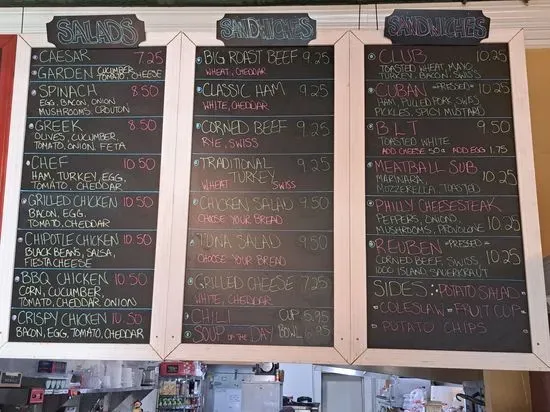 SALADS
CAESAR 7.25
GARDEN CUCUMBER,
TOMATO, CHEESE
SPINACH 8.50
EGG, BACON, ONION
MUSHROOMS, CROUTON
GREEK 8.50
OLIVES, CUCUMBER,
TOMATO, ONION FETA
CHEF 10.50
HAM, TURKEY, EGG,
TOMATO, CHEDDAR
GRILLED CHICKEN 10.50
BACON, EGG,
TOMATO, CHEDDAR
CHIPOTLE CHICKEN 10.50
BLACK BEANS, SALSA,
FIESTA CHEESE
BBQ CHICKEN 10.50
CORN, CUCUMBER
TOMATO, CHEDDAR, ONION
CRISPY CHICKEN 10.50
BACON, EGG, TOMATO, CHEDDAR
SANDWICHES
BIG ROAST BEEF 9.25
WHEAT, CHEDDAR
CLASSIC HAM 9.25
WHITE, CHEDDAR
CORNED BEEF 9.25
RYE, SWISS
TRADITIONAL TURKEY 9.25
WHEAT SWISS
CHICKEN SALAD 9.50
CHOOSE YOUR BREAD
TUNA SALAD 9.50
CHOOSE YOUR BREAD
GRILLED CHEESE 7.25
WHITE, CHEDDAR
CHILI CUP 5.95
SOUP OF THE DAY BOWL 6.95
SANDWICHES
CLUB 10.25
TOASTED WHEAT, MAYO,
TURKEY, BACON, SWISS
CUBAN -PRESSED- 10.25
HAM, PULLED PORK, SWISS
PICKLES, SPICY MUSTARD
BLT 9.50
TOASTED WHITE
ADD CHEESE 50¢ ADD EGG 1.75
MEATBALL SUB 10.25
MARINARA
MOZZERELLA, TOASTED
PHILLY CHEESESTEAK
PEPPERS, ONIONS, 10.25
MUSHROOMS, PROVOLONE
REUBEN -PRESSED- 10.25
CORNED BEEF, SWISS,
1000 ISLAND, SAUERKRAUT
SIDES: POTATO SALAD
COLESLAW - FRUIT CUP
POTATO CHIPS